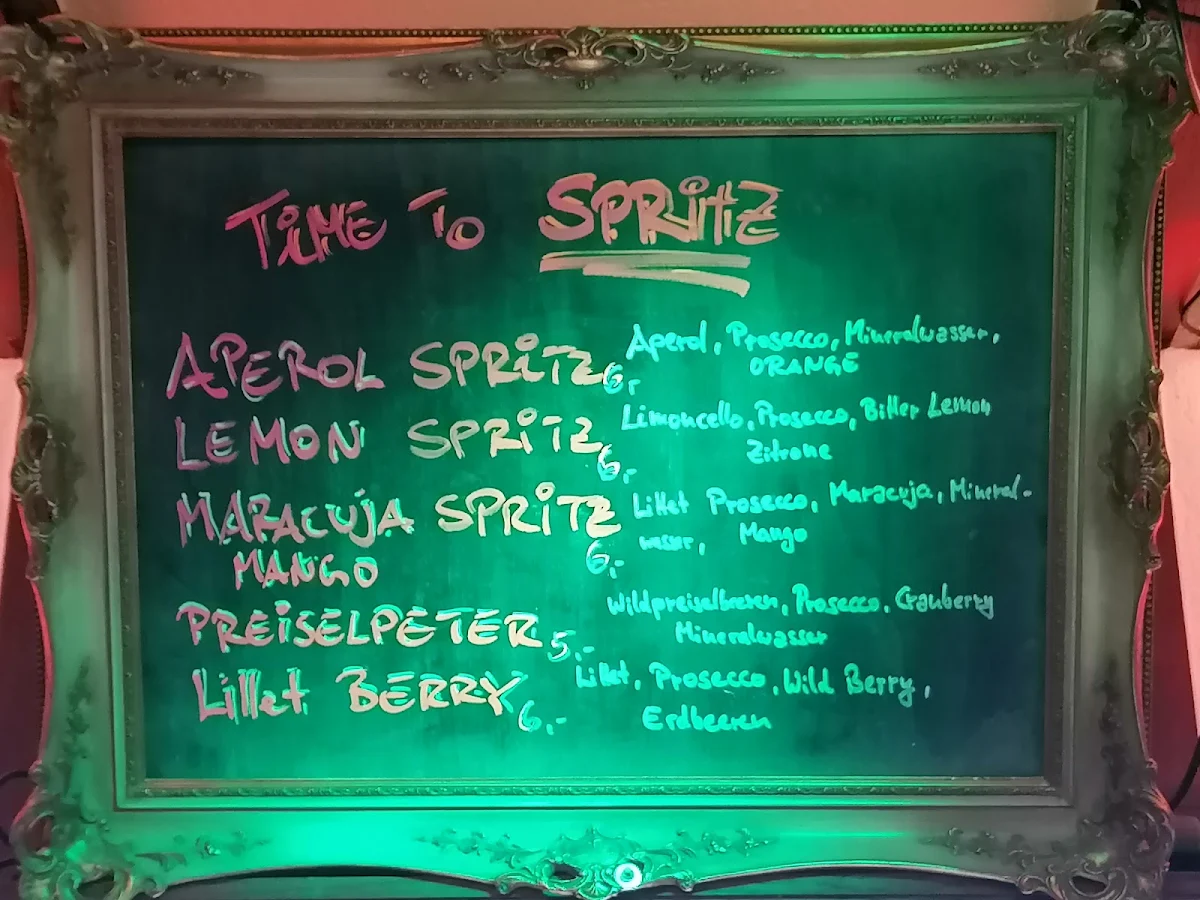 TIME TO SPRITZ
APEROL SPRITZ 6,- Aperol, Prosecco, Mineralwasser,
ORANGE
LEMON SPRITZ 6,- Limoncello, Prosecco, Bitter Lemon
Zitrone
MARACUJA SPRITZ 6,- Lillet Prosecco, Maracuja, Mineral-
MANGO wasser, Mango
PREISELPETER 5,- Wildpreiselbeeren, Prosecco, Cranberry
Mineralwasser
Lillet BERRY 6,- Lillet, Prosecco, Wild Berry,
Erdbeeren